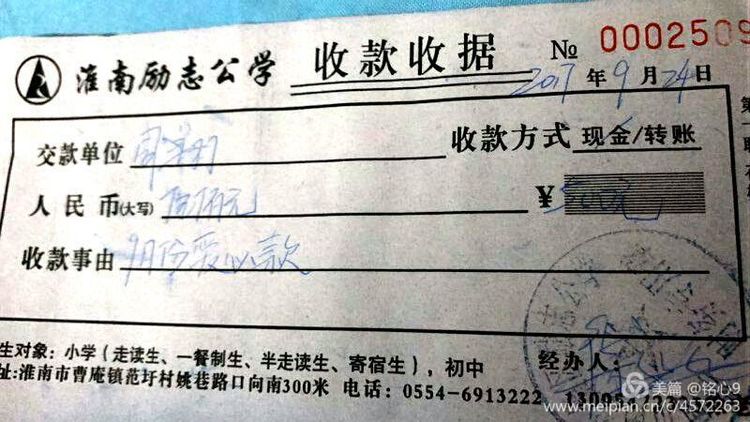 淮南励志公学 收款收据 № 0002509
2017年9月24日
交款单位 收款方式 现金/转账
人民币(大写) 伍佰元 ¥ 500元
收款事由 9月份爱心款
生对象：小学（走读生、一餐制生、半走读生、寄宿生），初中 经办人：
址:淮南市曹庵镇范圩村姚巷路口向南300米 电话：0554-6913222
美篇 @铭心9
www.meipian.cn/c/4572263